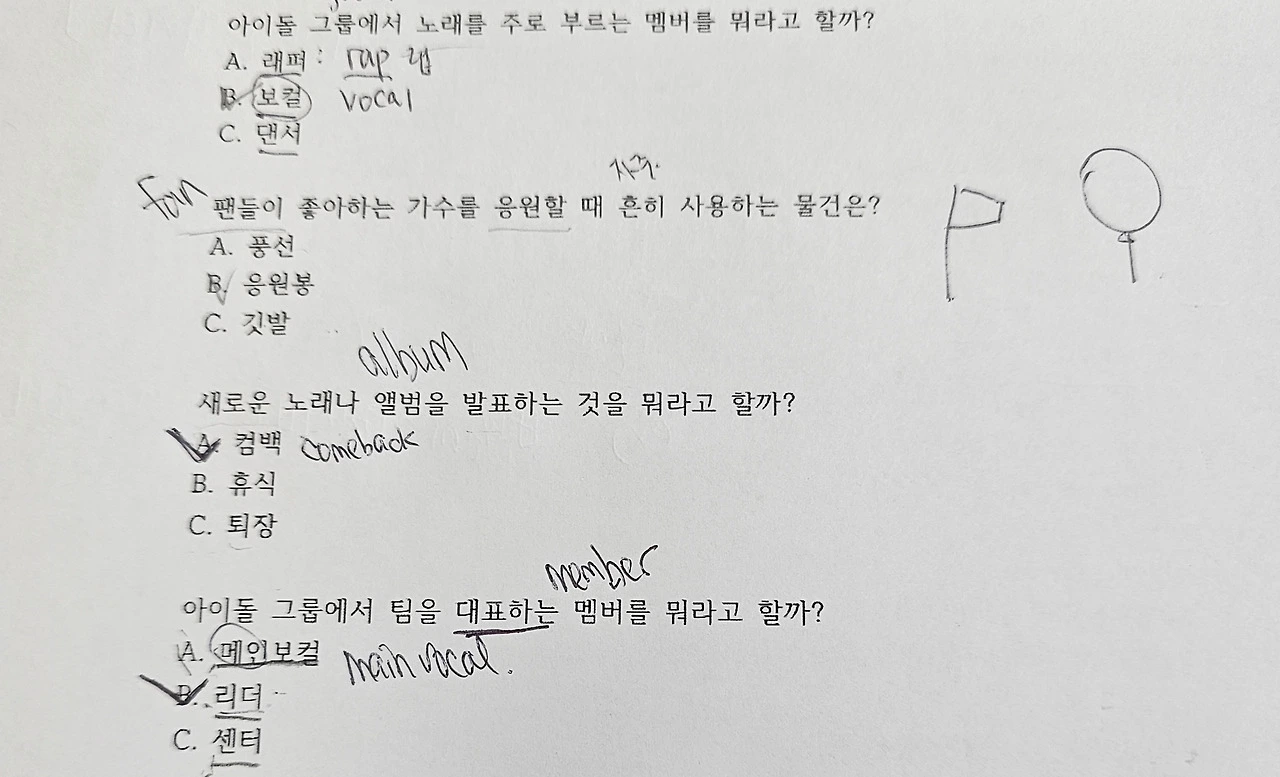 아이돌 그룹에서 노래를 주로 부르는 멤버를 뭐라고 할까?
A. 래퍼 : rap 랩
B. 보컬 vocal
C. 댄서
자주.
fan 팬들이 좋아하는 가수를 응원할 때 흔히 사용하는 물건은?
A. 풍선
B. 응원봉
C. 깃발
album
새로운 노래나 앨범을 발표하는 것을 뭐라고 할까?
A. 컴백 comeback
B. 휴식
C. 퇴장
member
아이돌 그룹에서 팀을 대표하는 멤버를 뭐라고 할까?
A. 메인보컬 main vocal.
B. 리더
C. 센터